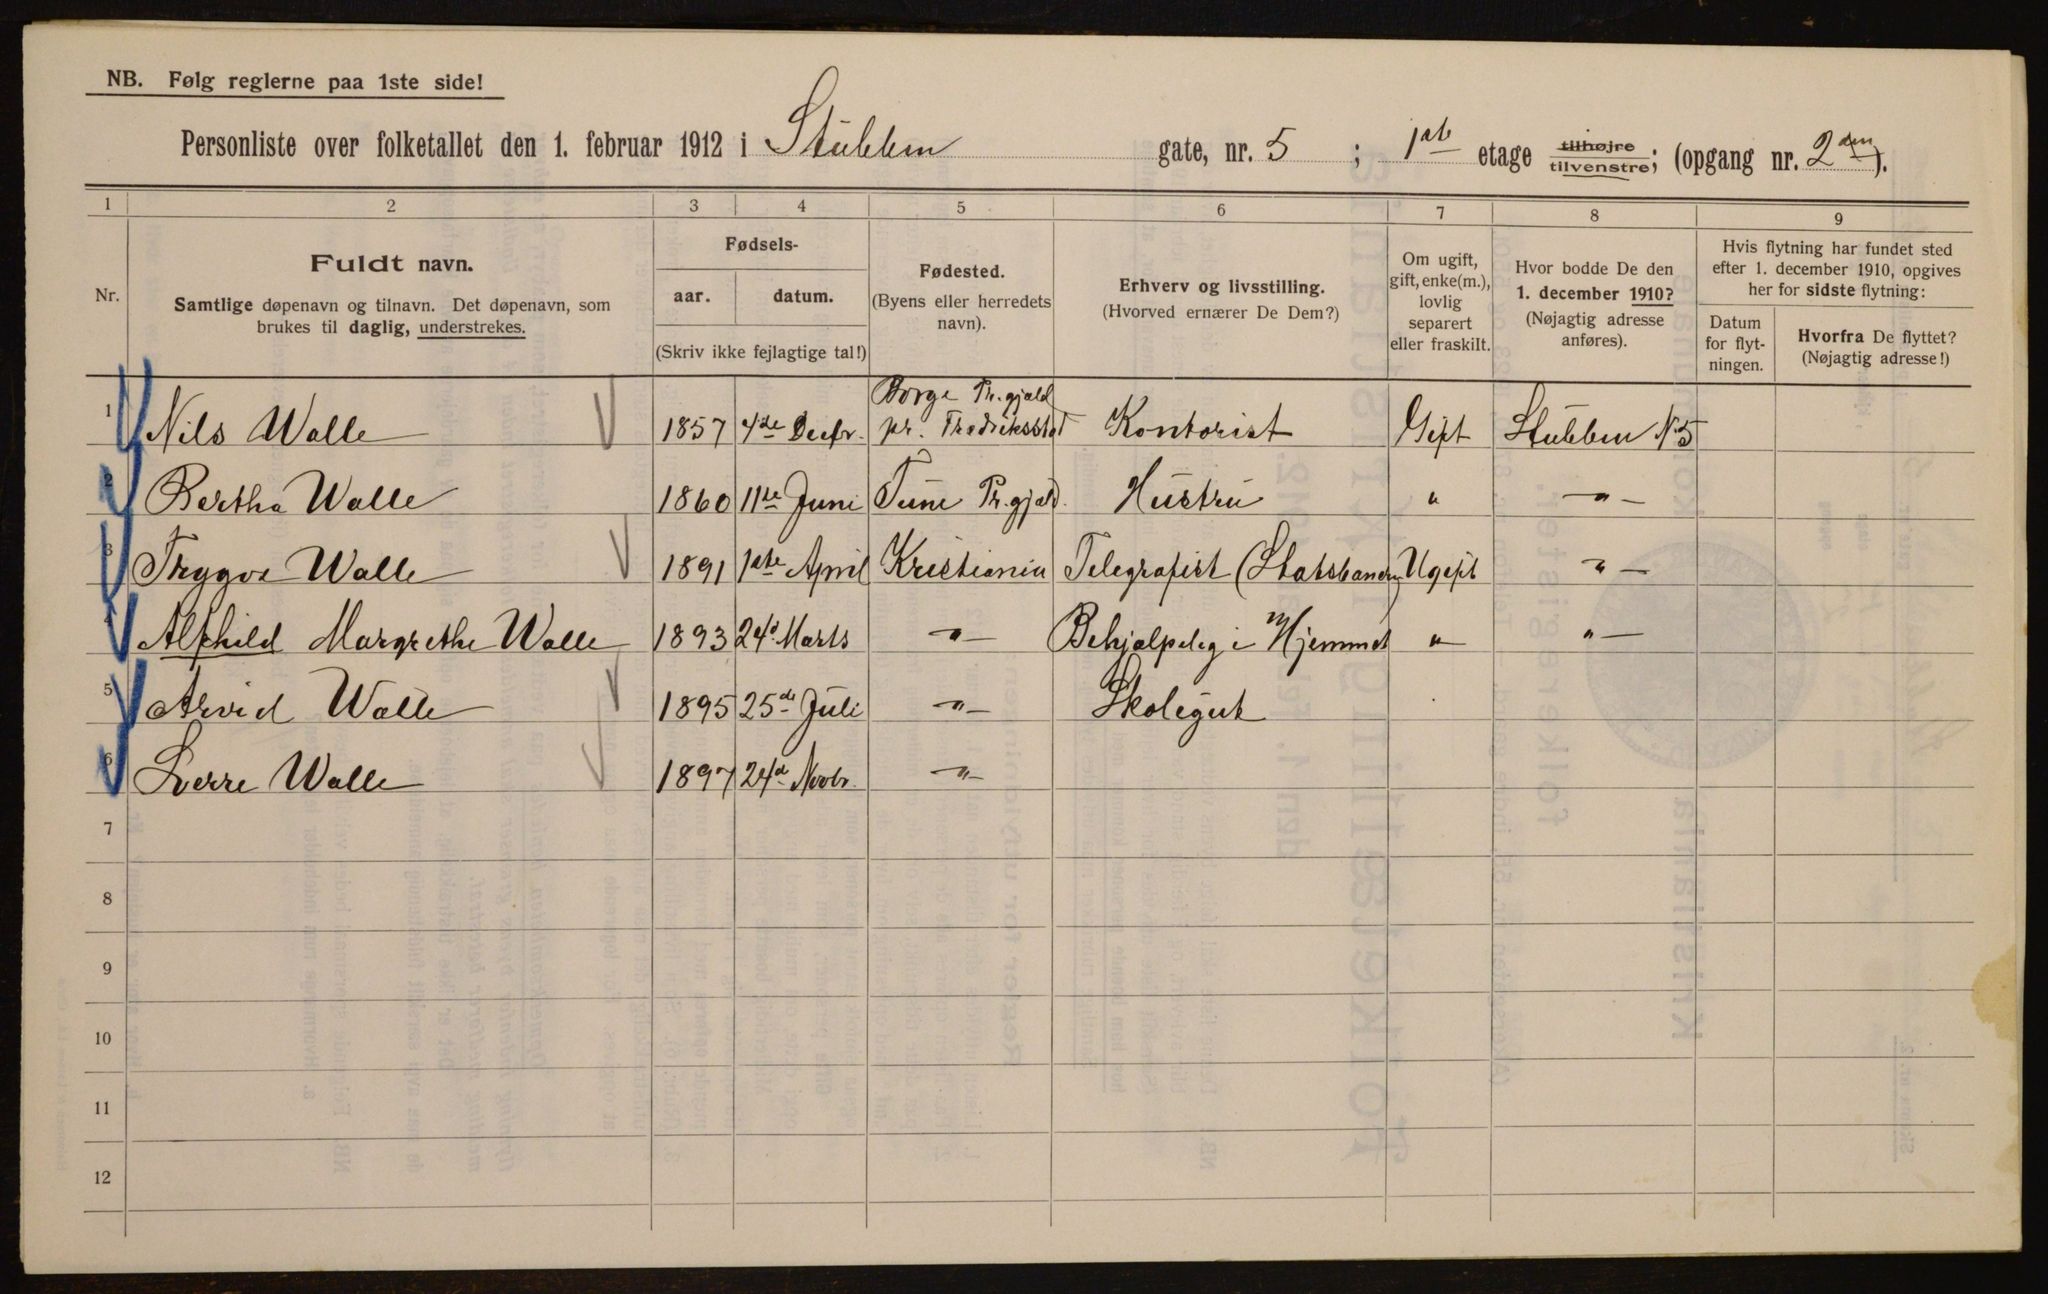 NB. Følg reglerne paa 1ste side!
Personliste over folketallet den 1. februar 1912 i Stubben gate, nr. 5 ; 1ste etage tilhøjre tilvenstre; (opgang nr. 2den).
1 2 3 4 5 6 7 8 9
Nr.
Fuldt navn.
Samtlige døpenavn og tilnavn. Det døpenavn, som
brukes til daglig, understrekes.
Fødsels-
aar. datum.
(Skriv ikke fejlagtige tal!)
Fødested.
(Byens eller herredets
navn).
Erhverv og livsstilling.
(Hvorved ernærer De Dem?)
Om ugift,
gift, enke(m.),
lovlig
separert
eller fraskilt.
Hvor bodde De den
1. december 1910?
(Nøjagtig adresse
anføres).
Hvis flytning har fundet sted
efter 1. december 1910, opgives
her for sidste flytning:
Datum
for flyt-
ningen.
Hvorfra De flyttet?
(Nøjagtig adresse!)
1 Nils Walle 1857 4de Decbr. Borge Pr.gjeld
pr. Fredriksstad Kontorist Gift Stubben N 5
2 Bertha Walle 1860 11te Juni Tune Pr.gjeld. Hustru " - " -
3 Trygve Walle 1891 1ste April Kristiania Telegrafist (Statsbanen) Ugift - " -
4 Alfhild Margrethe Walle 1893 24d Marts - " - Behjælpelig i Hjemmet " - " -
5 Arvid Walle 1895 25de Juli - " - Skolegut
6 Sverre Walle 1897 24d Novbr. - " -
7
8
9
10
11
12